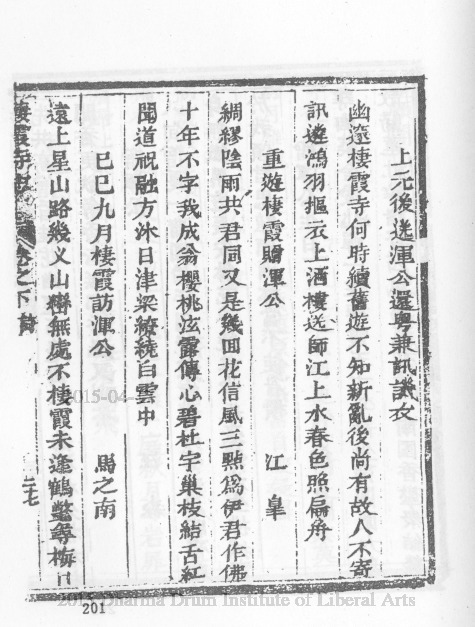 上元後送渾公還粵兼訊譏衣
幽邃棲霞寺何時續舊遊不知新亂後尚有故人不寄
訊遊鴻羽摳衣上酒樓送師江上水春色照扁舟
重遊棲霞贈渾公 江皐
綢繆陰雨共君同又是幾回花信風三點為伊君作佛
十年不字我成翁櫻桃泫露傳心碧杜宇巢枝結舌紅
聞道祝融方沐日津梁繚繞白雲中
己巳九月棲霞訪渾公 馬之南
遠上星山路幾义山轡無處不棲霞未逢鶴氅尋梅
棲霞寺志 卷之下
2015-04-
2015 Dharma Drum Institute of Liberal Arts
201